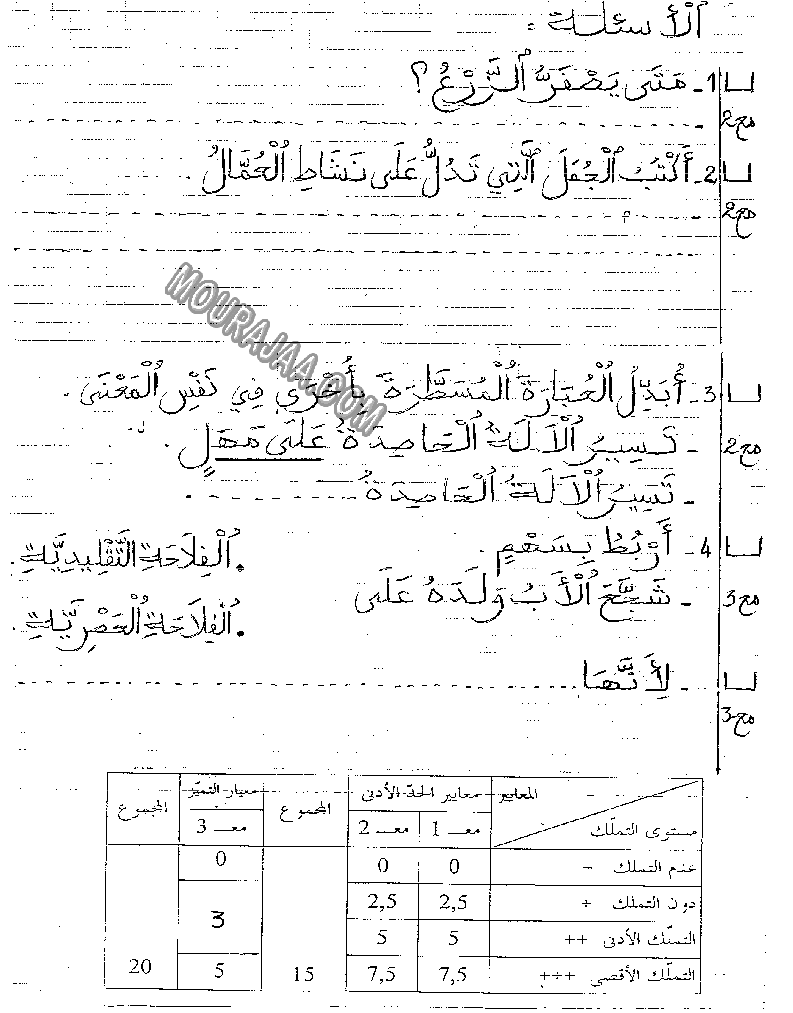 الْأَسْئِلَة :
لـــا 1 - مَتَى يَصْفَرُّ الزَّرْعُ ؟
مع2
لـــا 2 - أَكْتُبُ الْجُمَلَ الَّتِي تَدُلُّ عَلَى نَشَاطِ الْعُمَّالِ .
مع2
MOURAJAA.COM
لـــا 3 - أُبَدِّلُ الْعِبَارَةَ الْمُسَطَّرَةَ بِأُخْرَى فِي نَفْسِ الْمَعْنَى .
مع2 - تَسِيرُ الْآلَةُ الْحَاصِدَةُ عَلَى مَهَلٍ .
- تَسِيرُ الْآلَةُ الْحَاصِدَةُ ..........
لـــا 4 - أَرْبُطُ بِسَهْمٍ . • الْفِلَاحَةِ التَّقْلِيدِيَّةِ .
مع3 - شَجَّعَ الْأَبُ وَلَدَهُ عَلَى
• الْفِلَاحَةِ الْعَصْرِيَّةِ .
لـــا - لِأَنَّهَا ..........
مع3
المعايير معايير الحدّ الأدنى المجموع معيار التميّز المجموع
مستوى التملّك معـ 1 معـ 2 معـ 3
عدم التملك - 0 0 0
دون التملك + 2,5 2,5
3
التملّك الأدنى ++ 5 5
التملّك الأقصى +++ 7,5 7,5 15 5 20